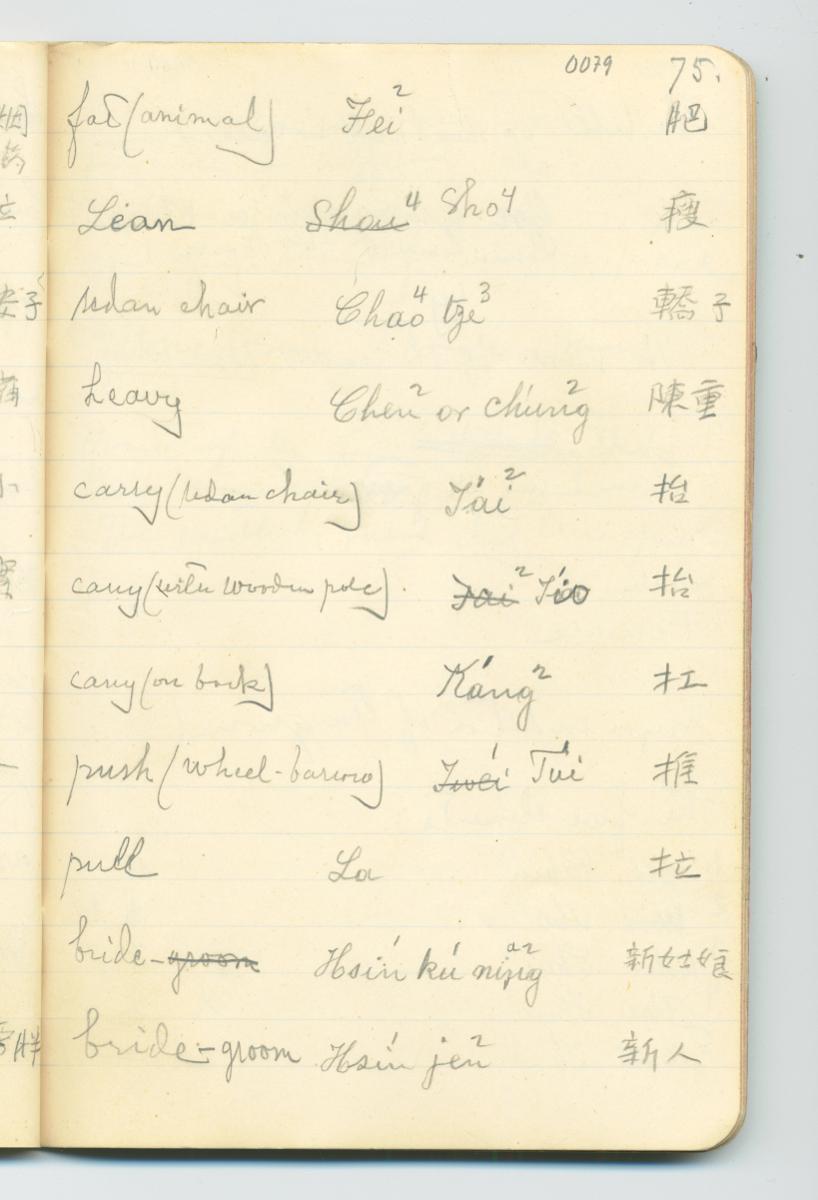 0079 75.
fat (animal) Fei² 肥
Lean Shou⁴ Sho⁴ 瘦
sedan chair Chaó⁴ tze³ 轎子
heavy Chen² or ch'ung² 陳重
carry (sedan chair) T'ai² 抬
carry (with wooden pole). 抬
carry (on back) K'ang² 扛
push (wheel-barrow) T'ui 推
pull La 拉
bride-groom Hsiń kú 新姑娘
bride-groom Hsiń jen² 新人